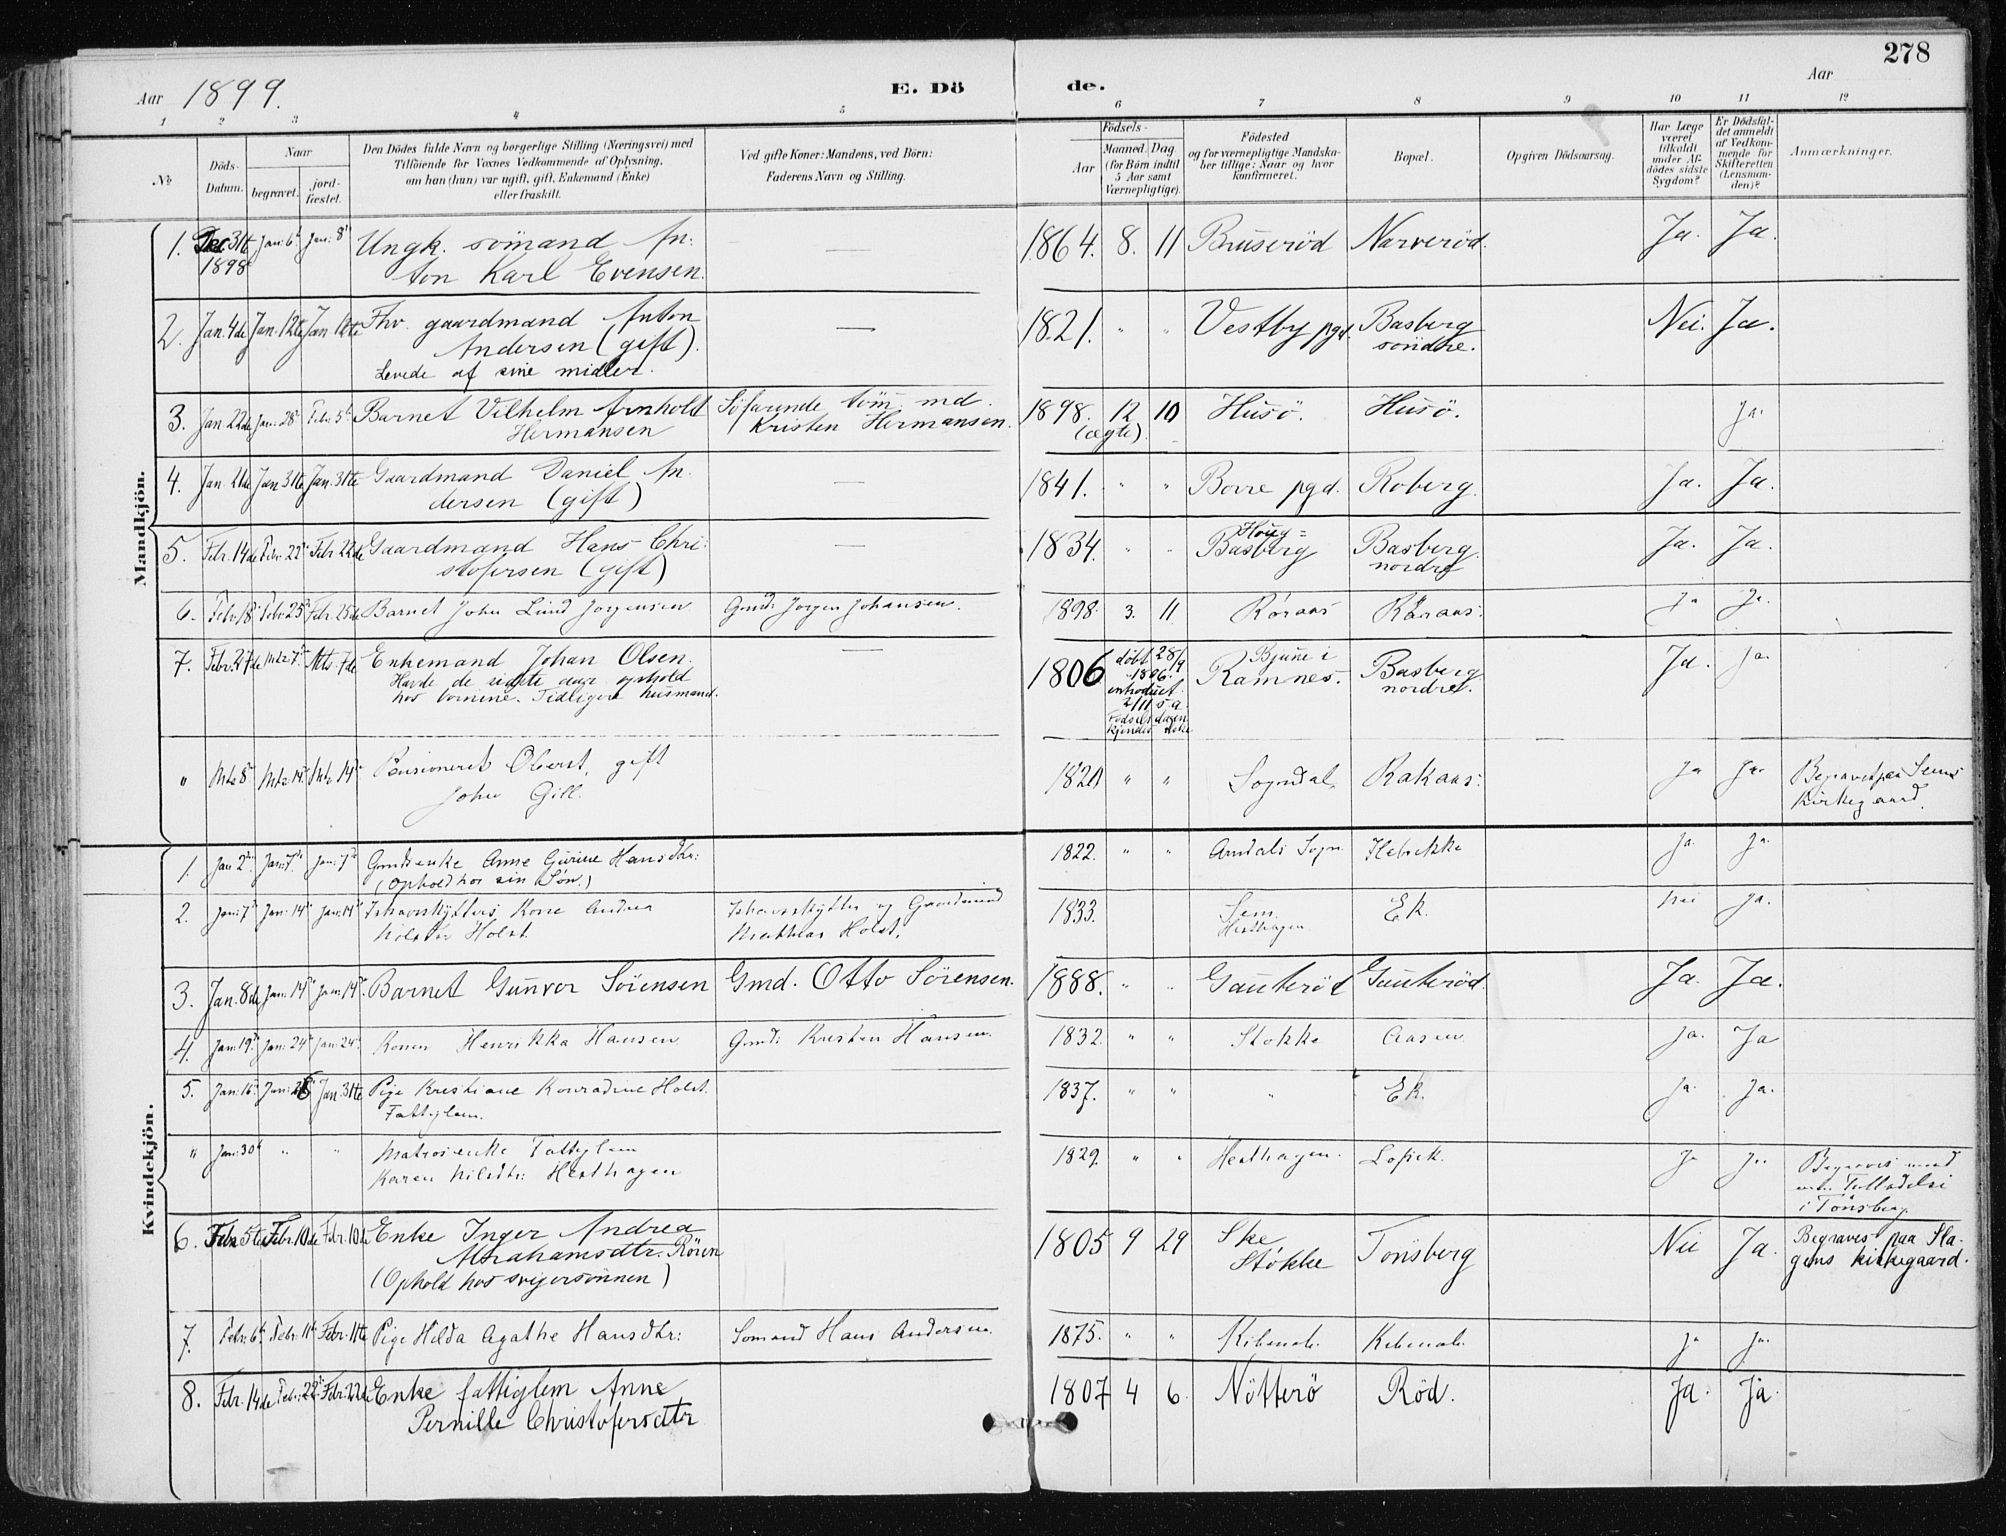 278
Aar 1899.
E. Dö de.
Aar
1 2 3 4 5 6 7 8 9 10 11 12
№
Döds-Datum.
Naar
begravet.
jord-fæstet.
Den Dödes fulde Navn og borgerlige Stilling (Næringsvei) med
Tilföiende for Voxnes Vedkommende af Oplysning,
om han (hun) var ugift, gift, Enkemand (Enke)
eller fraskilt.
Ved gifte Koner: Mandens, ved Börn:
Faderens Navn og Stilling.
Födsels-
Aar
Maaned. Dag
(for Børn indtil
5 Aar samt
Værnepligtige).
Födested
og for værnepligtige Mandska-
ber tillige: Naar og hvor
konfirmeret.
Bopæl.
Opgiven Dödsaarsag.
Har Læge
været
tilkaldt
under Af-
dödes sidste
Sygdom?
Er Dödsfal-
det anmeldt
af Vedkom-
mende for
Skifteretten
(Lensman-
den)?
Anmærkninger.
Mandkjön.
1. Dec 31te Jan: 6te Jan: 8de Ungk. sömand An- — 1864. 8. 11 Bruserød Narverød. Ja. Ja.
1898 ton Karl Evensen.
2. Jan. 4de Jan. 12te Jan 12te Fhv. gaardmand Anton — 1821. " " Vestby pgd. Basberg Nei. Ja.
Andersen (gift). söndre.
Levede af sine midler.
3. Jan 22de Jan: 28de Febr: 5te Barnet Vilhelm Arnhold Söfarende töm. md. 1898. 12 10 Husö. Husö. Ja.
Hermansen Kristen Hermansen. (ægte).
4. Jan. 21de Jan 31te Jan. 31te Gaardmand Daniel An- — 1841. " " Borre pgd. Roberg. Ja. Ja.
dersen (gift)
5. Febr. 14de Febr. 22de Febr 22de Gaardmand Hans Chri- — 1834. " " Houg= Basberg Basberg Ja. Ja.
stofersen (gift) nordre
6. Febr. 18de Febr. 25de Febr. 25de Barnet John Lund Jorgensen Gmd: Jorgen Johansen. 1898. 3. 11 Röraas Röraas. Ja Ja.
7. Febr. 27de Mts 7de Mts. 7de Enkemand Johan Olsen. — 1806 döbt 28/9 Bjune i Basberg Ja. Ja.
Havde de sidste aar ophold 1806. Ramnes. nordre.
hos børnene. Tidligere husmand. introduct. 2/11 s. a.
Födselsdagen kjendes ikke
" Mts 8de Mts 14de Mts 14de Pensioneret Oberst, gift 1821 " " Sogndal Rakaas. Ja Ja. Begravet paa Sems
John Gill. Kirkegaard.
Kvindekjön.
1. Jan 2den Jan: 7de Jan: 7de Gmdsenke Anne Gurine Hansdtr: 1822. " " Arndals Sogn Ja. Ja.
(Ophold hos sin Søn.)
2. Jan: 7de Jan: 14de Jan: 14de Ishavsskytters Kone Andrea Ishavsskytter og Gaardmand 1833. Sem. Ek. Nei Ja.
Nilsdtr Holst. Matthias Holst. Hesthagen
3. Jan. 8de Jan: 14de Jan: 14de Barnet Gunvor Sörensen Gmd. Otto Sörensen. 1888. " " Gauterød Gauterød. Ja. Ja.
4. Jan: 19de Jan: 24de Jan: 24de Konen Henrikka Hansen Gmd: Kristen Hansen. 1832. " " Stokke Aasen Ja. Ja
5. Jan: 16de Jan: 26 Jan. 31te Pige Kristiane Konradine Holst. 1837. " " " Ek. Ja. Ja.
Fattiglem.
" Jan: 30te " " Matrosenke Fattiglem 1829. " " Hesthagen. Ja Ja. Begraves med
Karen Nilsdtr: Hesthagen Tilladelse
i Tönsberg.
6. Febr 5te Febr. 10de Febr. 10de Enke Inger Andrea 1805 9 29 Ske Tönsberg Nei Ja. Begraves paa Sla-
Abrahamsdtr. Rören Stokke gens kirkegaard.
(Ophold hos svigersønnen)
7. Febr. 6te Febr. 11te Febr. 11te Pige Hilda Agathe Hansdtr: Sömand Hans Andersen. 1875. " " Ja Ja.
8. Febr. 14de Febr. 22de Febr. 22de Enke fattiglem Anne 1807 4 6. Nötterö Röd. Ja. Ja.
Pernille Christofersdtr